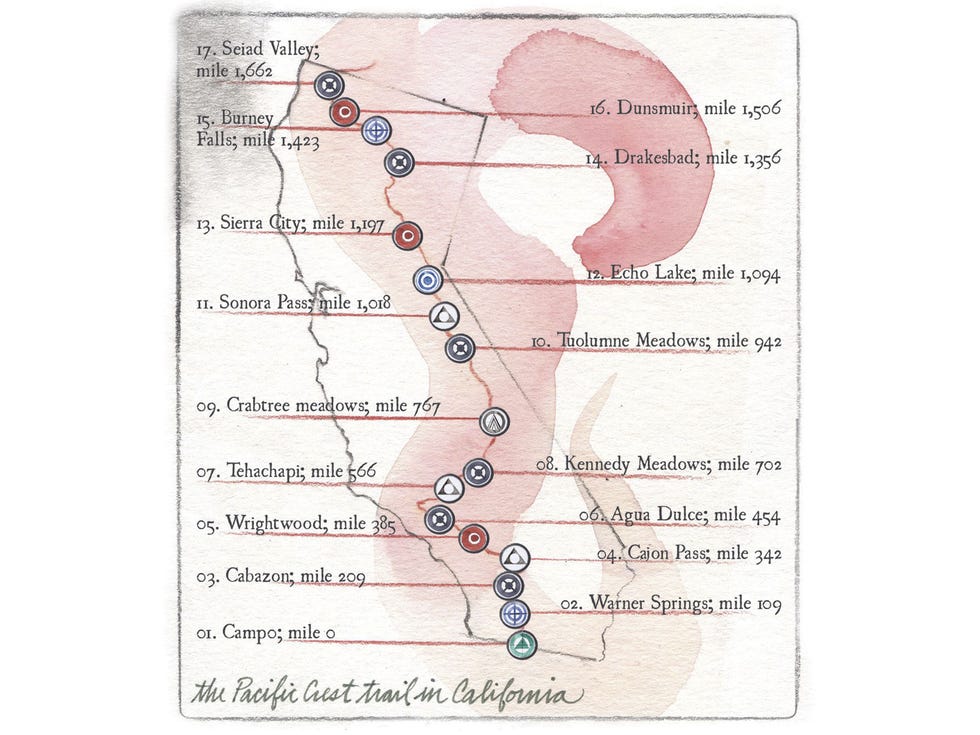 17. Seiad Valley;
mile 1,662
16. Dunsmuir; mile 1,506
15. Burney
Falls; mile 1,423
14. Drakesbad; mile 1,356
13. Sierra City; mile 1,197
12. Echo Lake; mile 1,094
11. Sonora Pass; mile 1,018
10. Tuolumne Meadows; mile 942
09. Crabtree meadows; mile 767
08. Kennedy Meadows; mile 702
07. Tehachapi; mile 566
06. Agua Dulce; mile 454
05. Wrightwood; mile 385
04. Cajon Pass; mile 342
03. Cabazon; mile 209
02. Warner Springs; mile 109
01. Campo; mile 0
the Pacific Crest trail in California